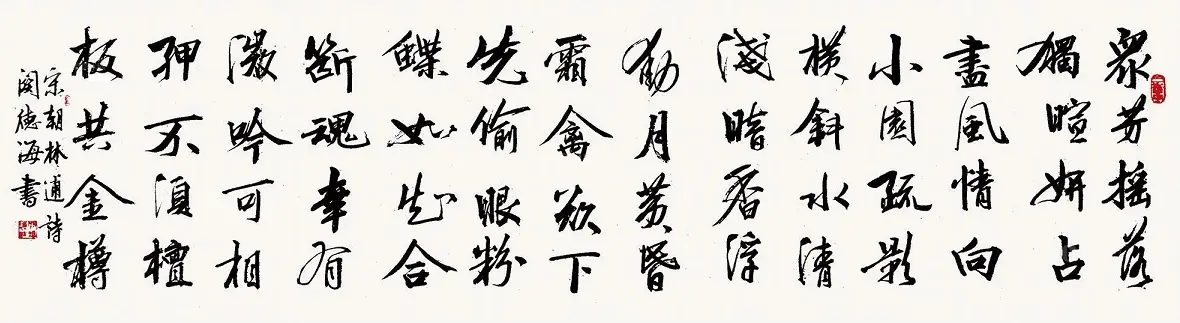 眾芳搖落
獨暄妍占
盡風情向
小園疏影
橫斜水清
淺暗香浮
動月黃昏
霜禽欲下
先偷眼粉
蝶如知合
斷魂幸有
微吟可相
狎不須檀
板共金樽
宋朝林逋詩
德海書